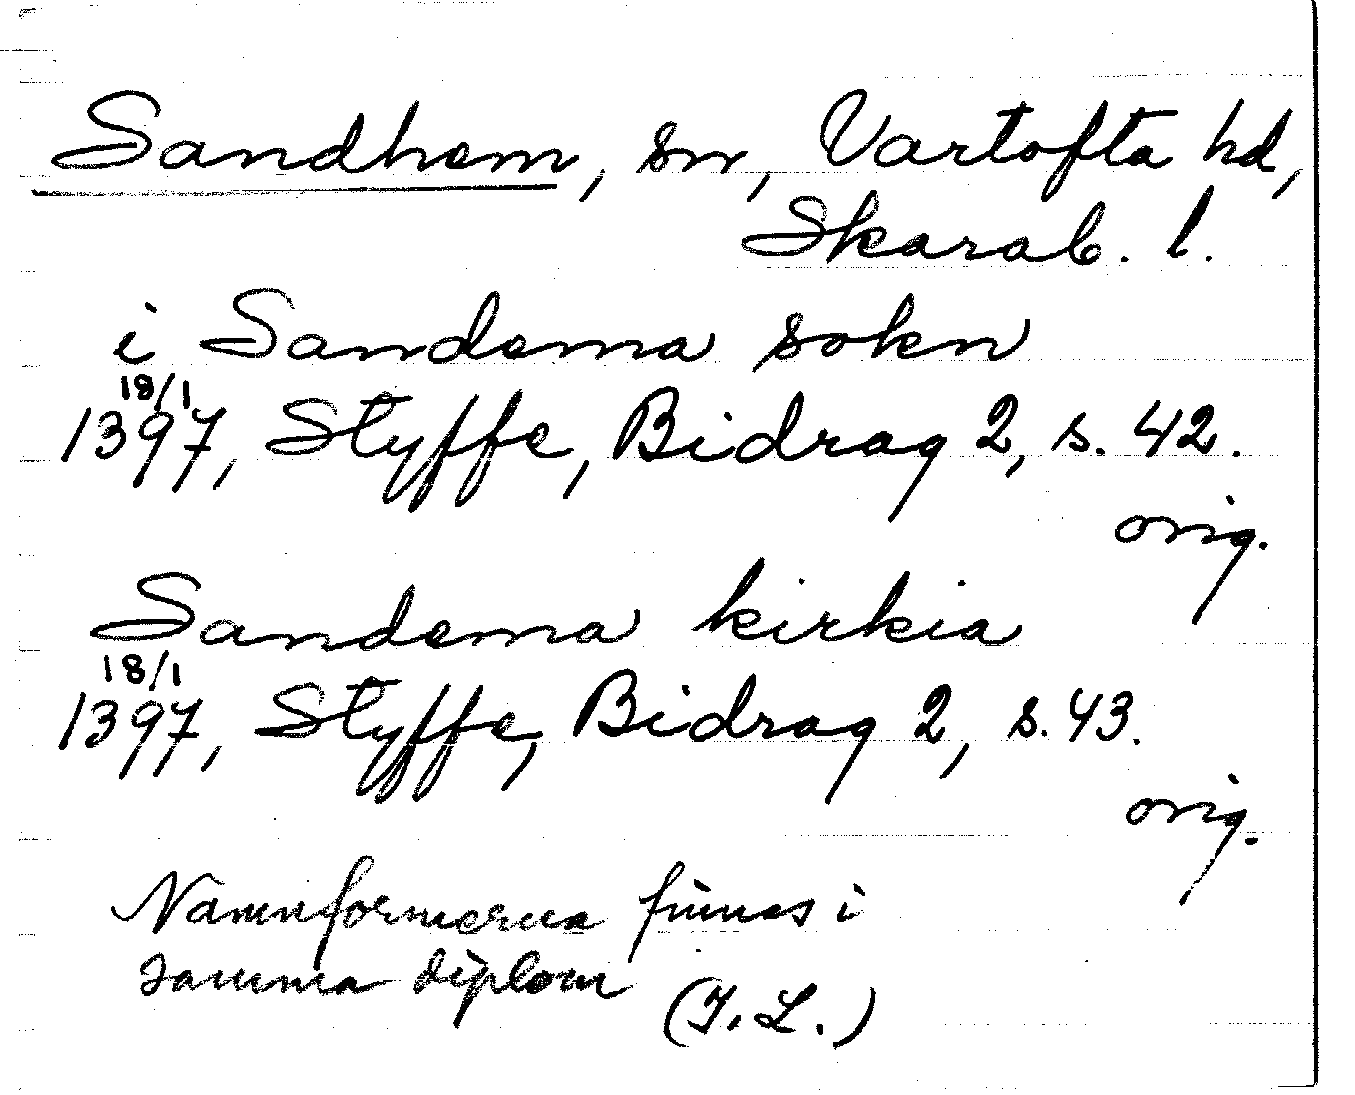 Sandhem, sn, Vartofta hd,
Skarab. l.
i Sandema sokn
18/1
1397, Styffe, Bidrag 2, s. 42.
orig.
Sandema kirkia
18/1
1397, Styffe, Bidrag 2, s. 43.
orig.
Namnformerna finnas i
samma diplom (I. L.)